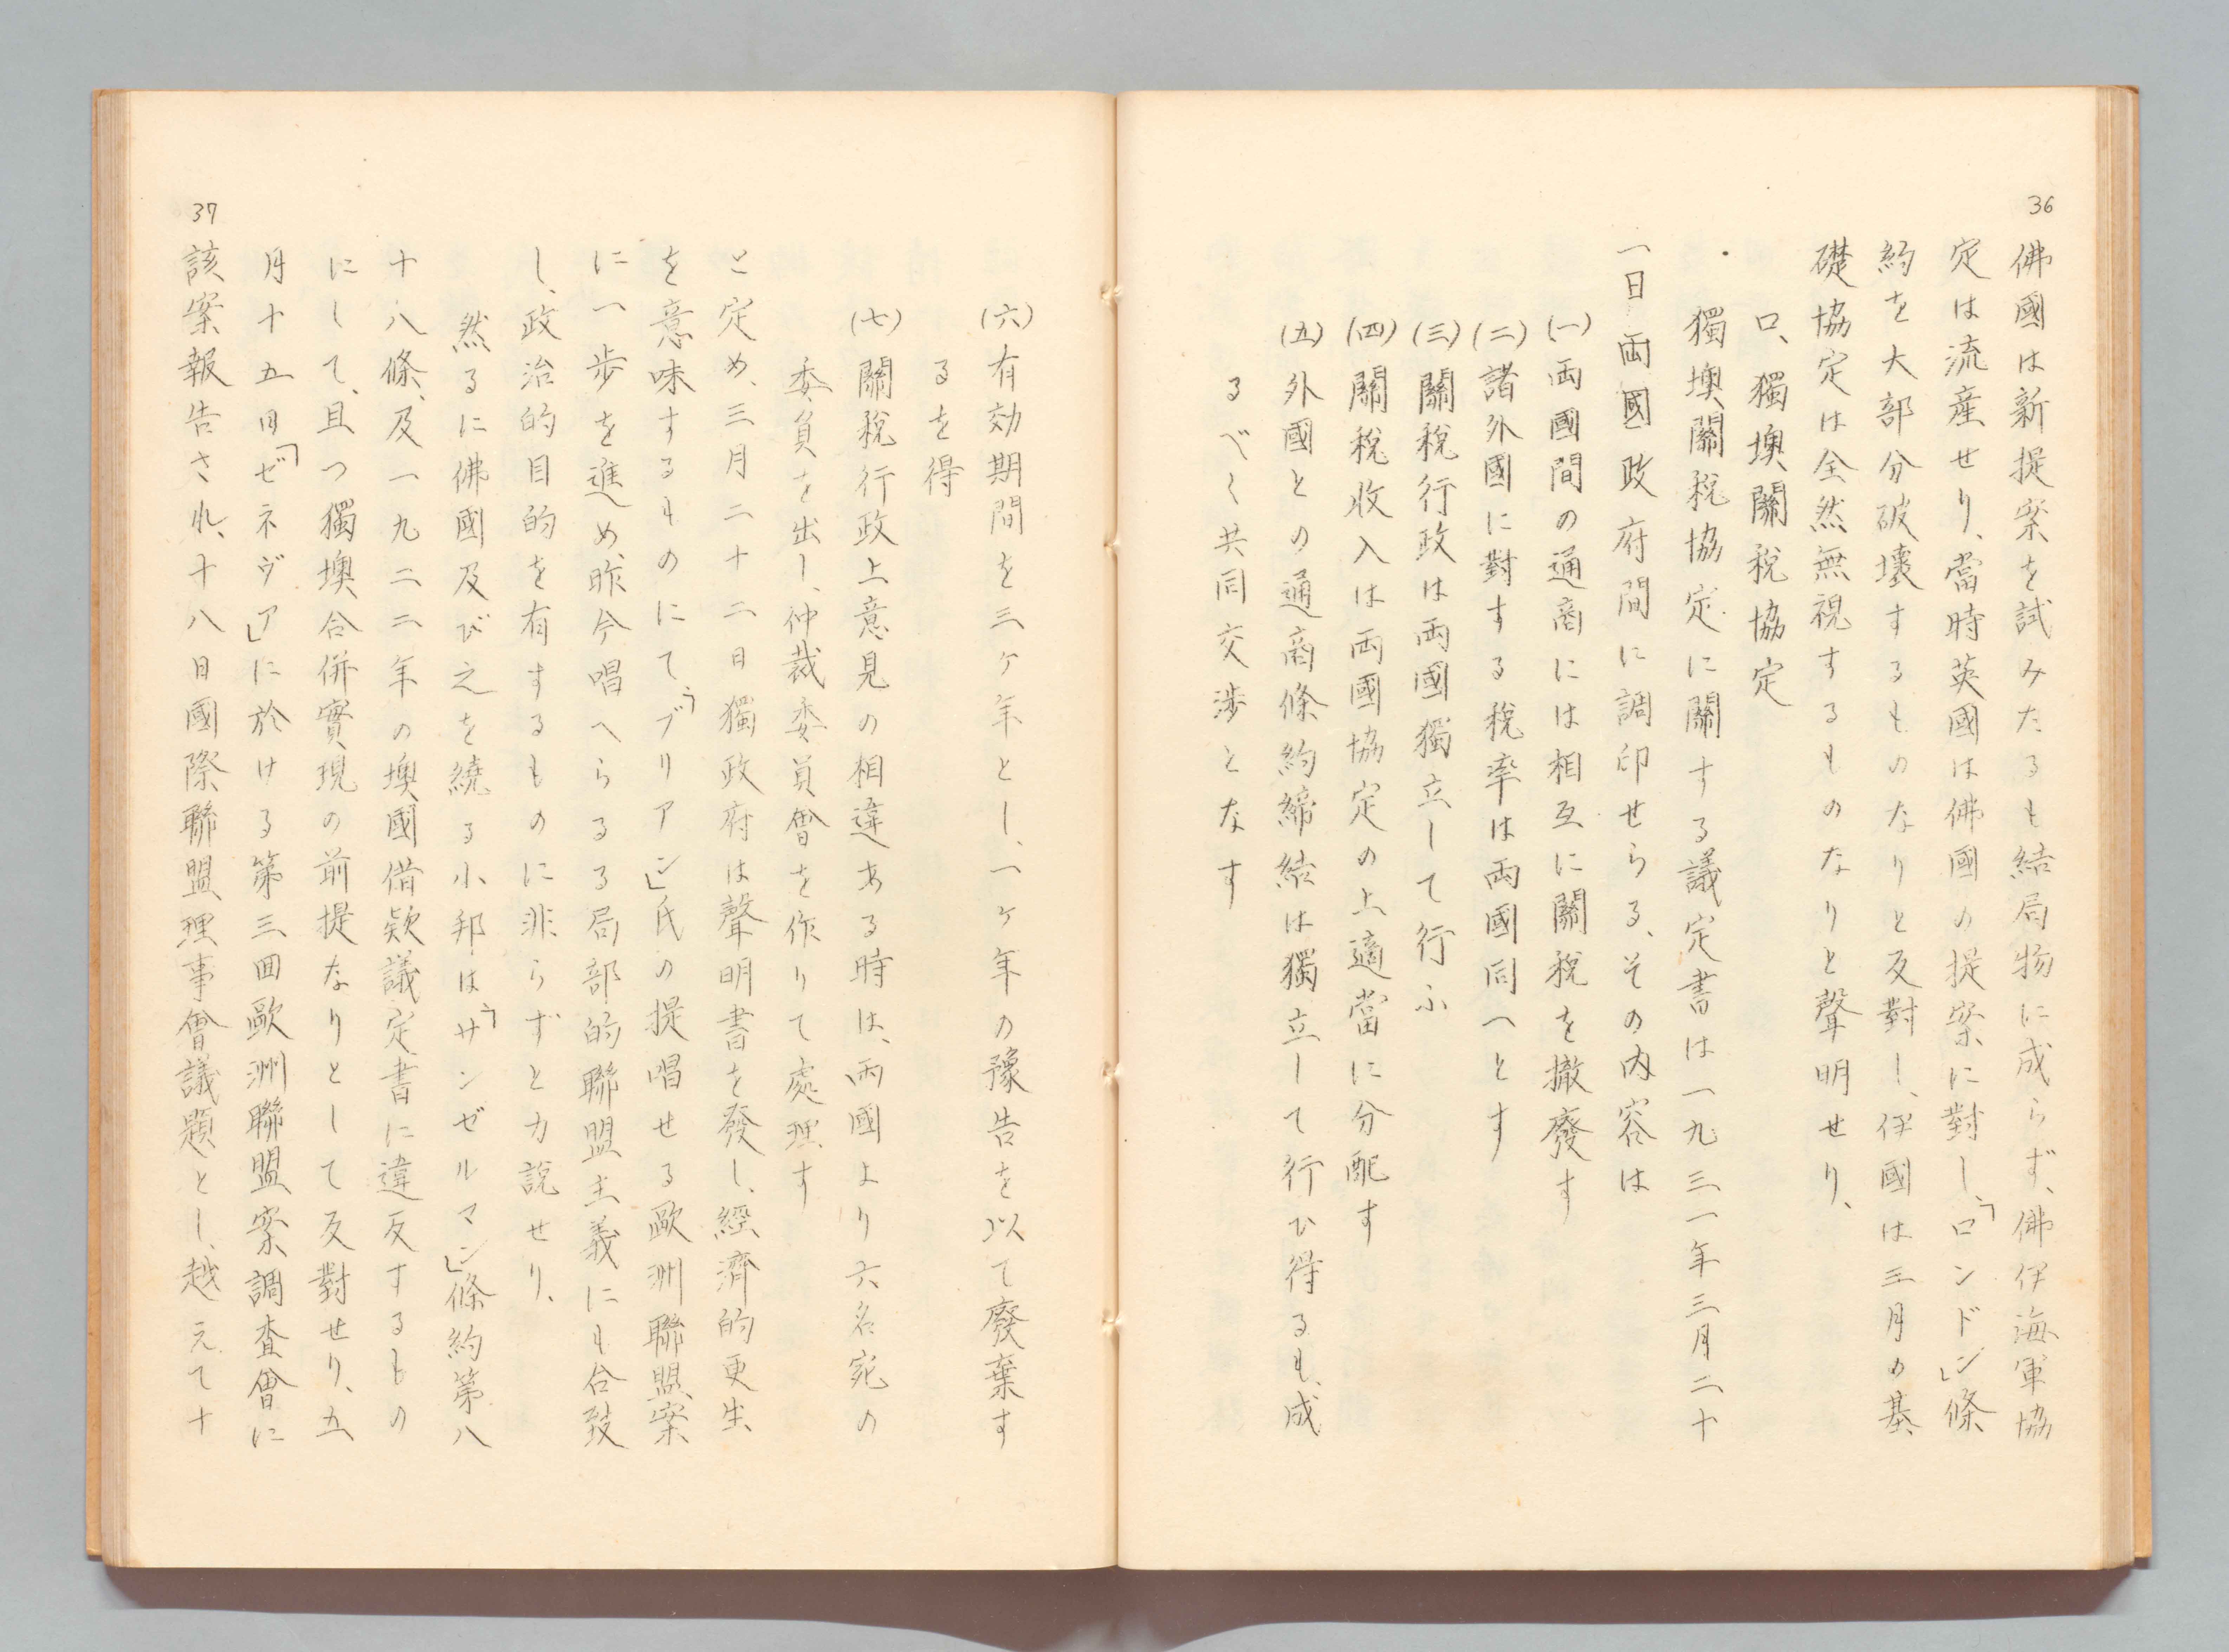 36
佛國は新提案を試みたるも結局物に成らず、佛伊海軍協
定は流産せり、當時英國は佛國の提案に對し、「ロンドン」條
約を大部分破壞するものなりと反對し、伊國は三月の基
礎協定は全然無視するものなりと聲明せり、
ロ、獨墺關税協定
獨墺關税協定に關する議定書は一九三一年三月二十
一日両國政府間に調印せらる、その内容は
(一)両國間の通商には相互に關税を撤廢す
(二)諸外國に對する税率は両國同一とす
(三)關税行政は両國獨立して行ふ
(四)關税收入は両國協定の上適當に分配す
(五)外國との通商條約締結は獨立して行ひ得るも、成
るべく共同交渉となす
(六)有効期間を三ケ年とし、一ケ年の豫告を以て廢棄す
るを得
(七)關税行政上意見の相違ある時は、両國より六名宛の
委員を出し、仲裁委員會を作りて處理す
と定め、三月二十二日獨政府は聲明書を發し、經濟的更生
を意味するものにて「ブリアン」氏の提唱せる歐洲聯盟案
に一歩を進め、昨今唱へらるる局部的聯盟主義にも合致
し、政治的目的を有するものに非らずと力説せり、
然るに佛國及び之を繞る小邦は「サンゼルマン」條約第八
十八條、及一九二二年の墺國借款議定書に違反するもの
にして、且つ獨墺合併實現の前提なりとして反對せり、五
月十五日「ゼネヴア」に於ける第三回歐洲聯盟案調査會に
37
該案報告され、十八日國際聯盟理事會議題とし、越えて十